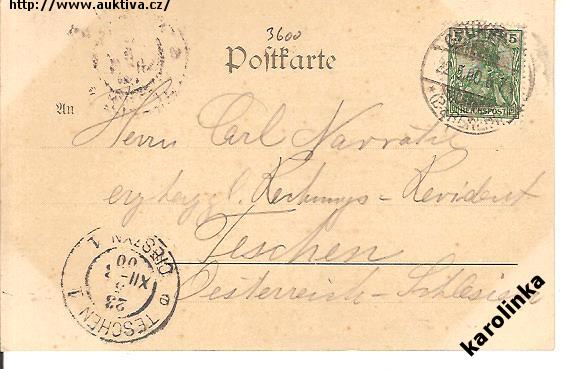 http://www.auktiva.cz/
3600
Postkarte
5
REICHSPOST
An
Herrn Carl Navratil
erzherzgl. Rechnungs-Revident
Teschen
Oesterreich-Schlesien
TESCHEN 1
CIESZYN 1
23
XII-3
00
karolinka